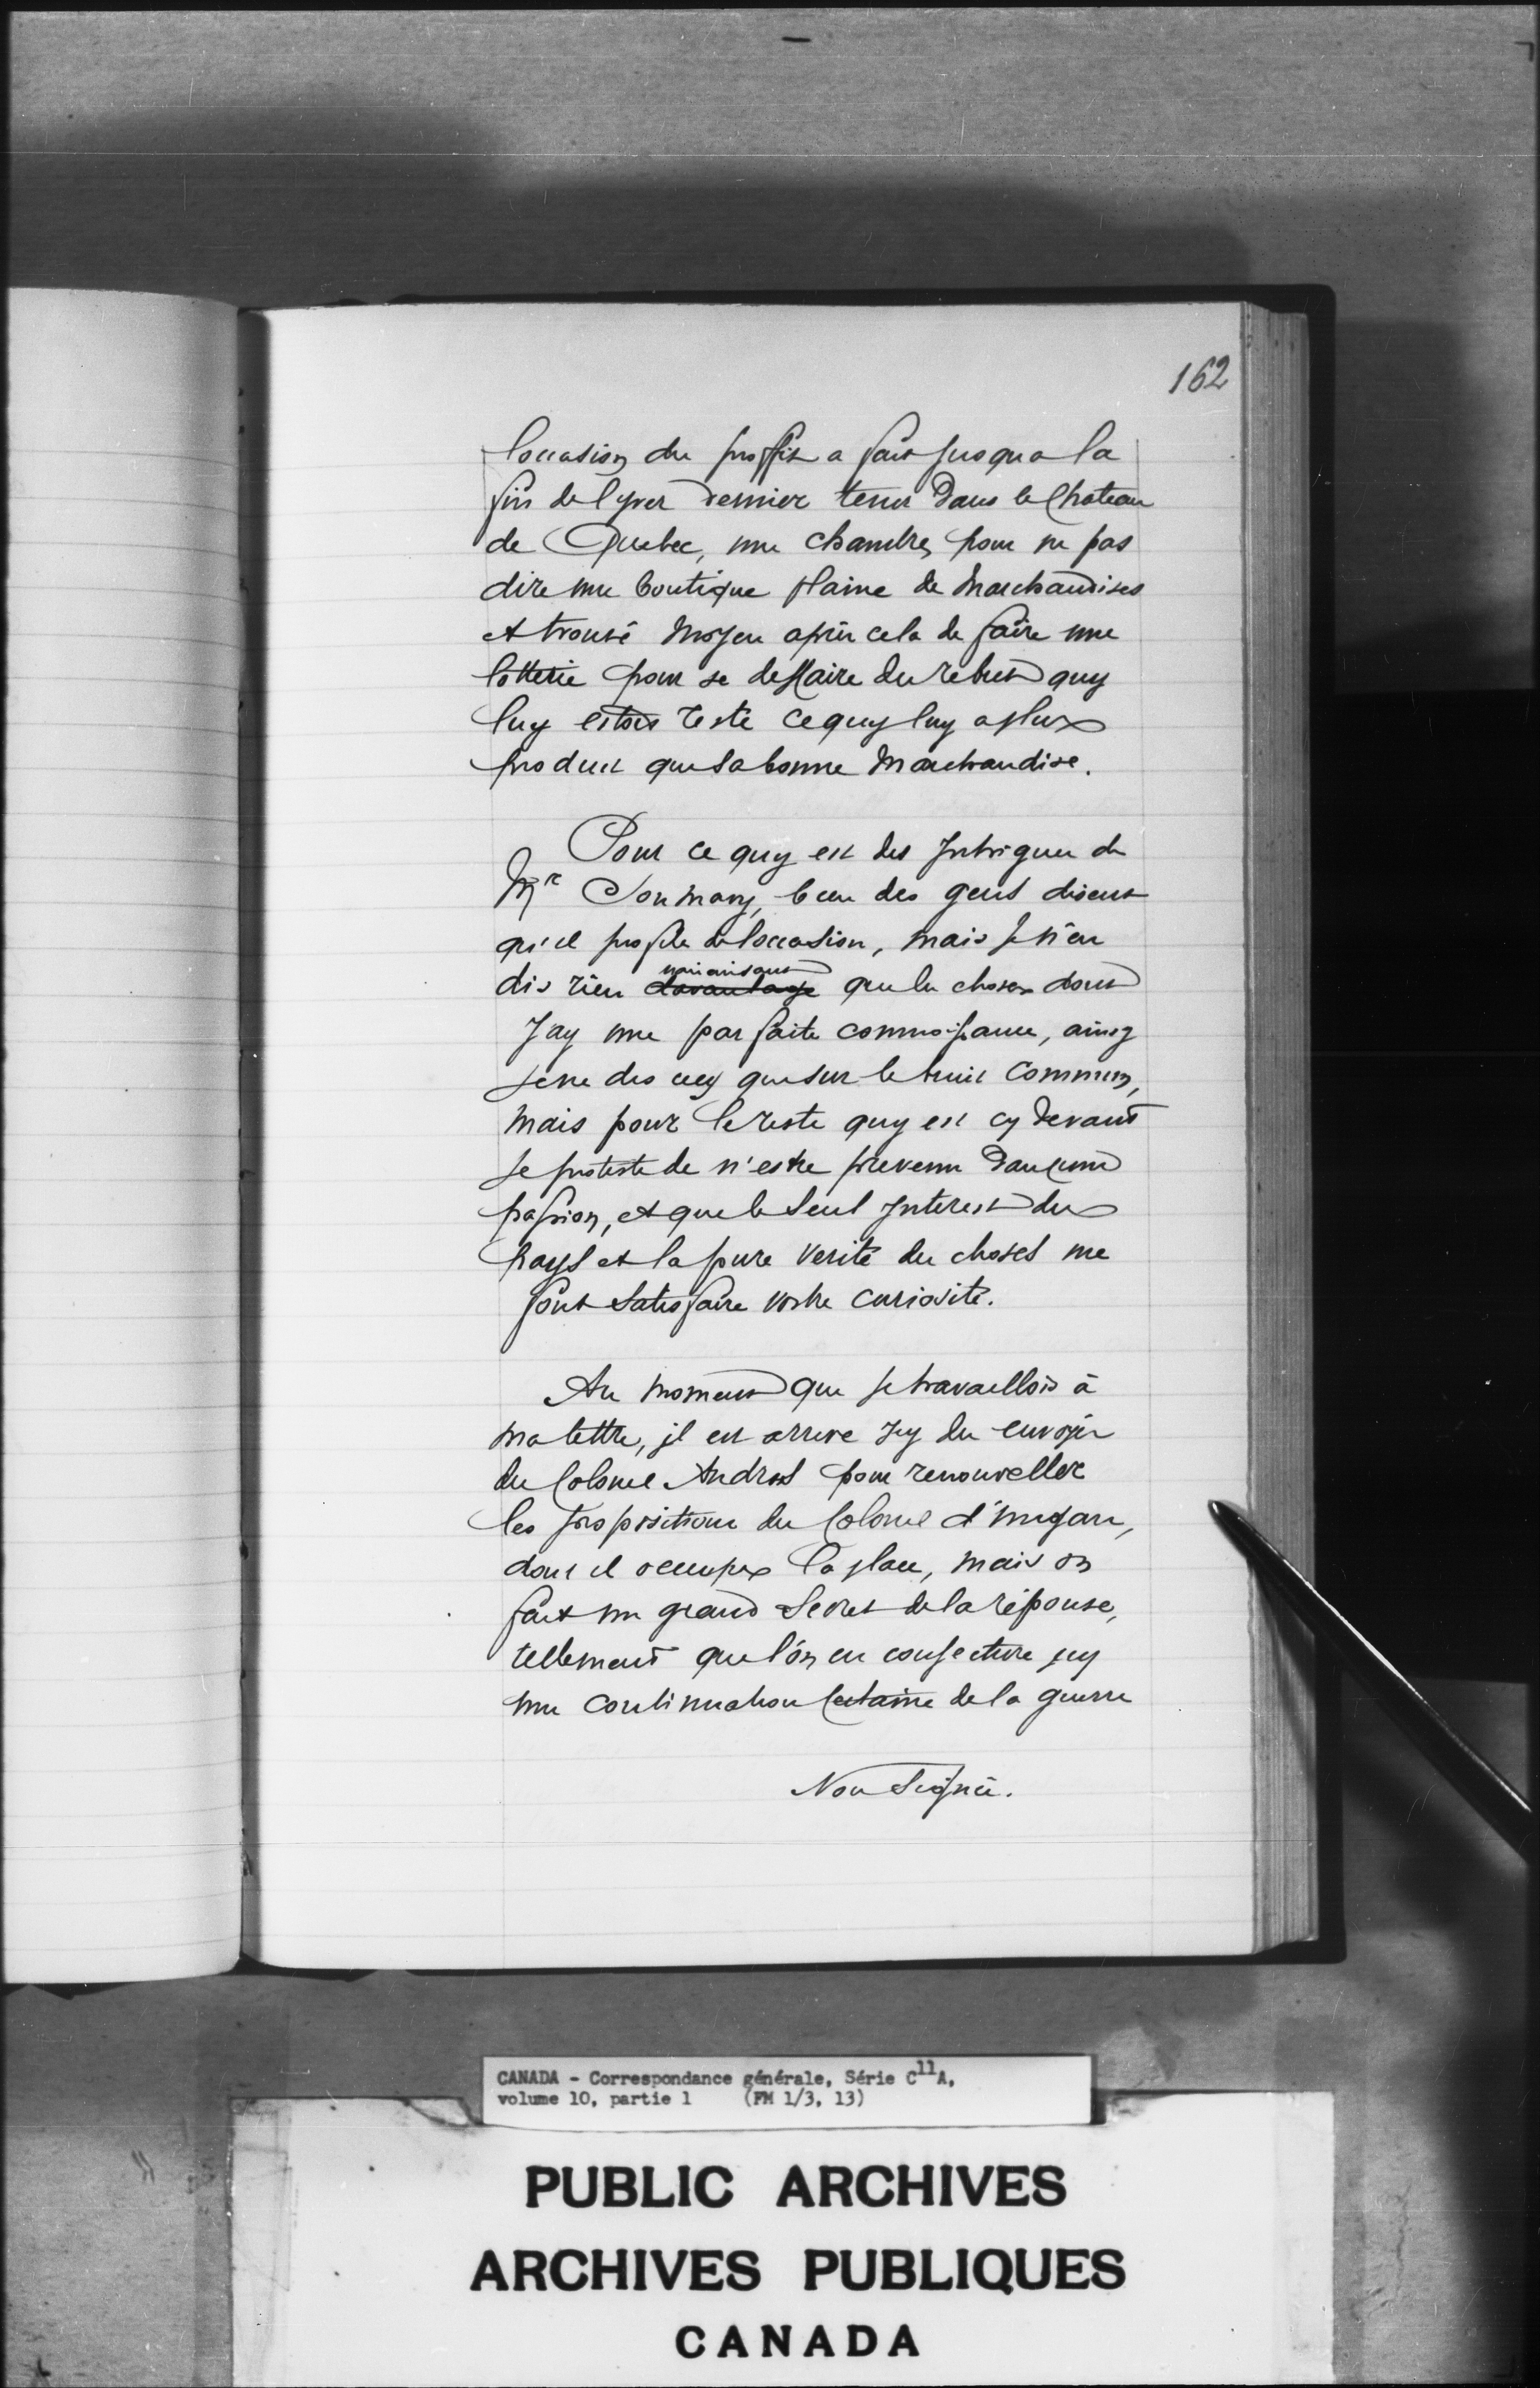 162
loccasion du proffit a fait jusqua la
fin de lyver dernier tenir dans le Chateau
de Quebec, une chambre, pour ne pas
dire une boutique plaine de Marchandises
et trouvé moyen après cela de faire une
lotterie pour se deffaire du rebut quy
luy estois resté ce quy luy a plus
produit que sa bonne Marchandise.
Pour ce quy est des Jntrigues de
Mr son mary, bien des gens disent
qu'il profite de loccasion, mais Je n'en
dis rien davantage que les choses dont
J'ay une parfaite connoissance, ainsy
Je ne dis cecy que sur le bruit commun,
mais pour le reste quy est cy devant
Je proteste de n'estre prevenu daucune
passion, et que le seul Jnterest du
pays et la pure verité des choses me
font satisfaire vostre curiosité.
Au moment que Je travaillois à
ma lettre, jl est arrivé Jcy des envoyés
du Colonel Andros pour renouveller
les propositions du Colonel d'Unguan,
dont il occupe la place, mais on
fait un grand secret de la réponse,
tellement que l'on en conjecture jcy
une continuation certaine de la guerre
Non Signée.
CANADA - Correspondance générale, Série C11A,
volume 10, partie 1 (FM 1/3, 13)
PUBLIC ARCHIVES
ARCHIVES PUBLIQUES
CANADA